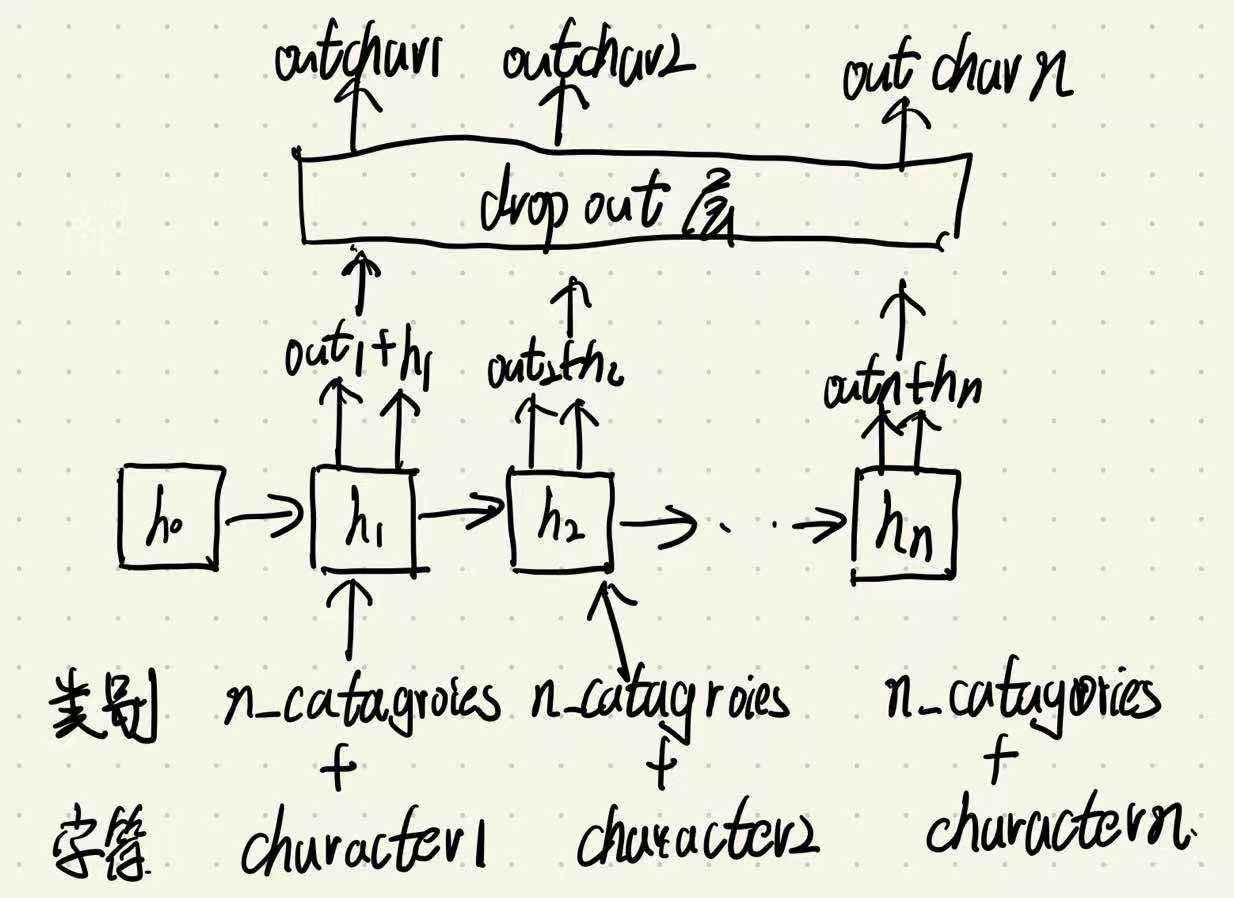 outchar1 outchar2 out char n
drop out 层
out1+h1 out2+h2 outn+hn
h0 h1 h2 hn
类别 n_catagroies n_catagroies n_catagories
+ + +
字符 character1 character2 charactern